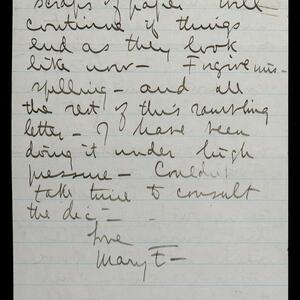 scraps of paper will
continue if things
end as they look
like now — Forgive mis-
spilling — and all
the rest of this rambling
letter — I have been
doing it under high
pressure — Couldn't
take time to consult
the dic; —
love
Mary E —